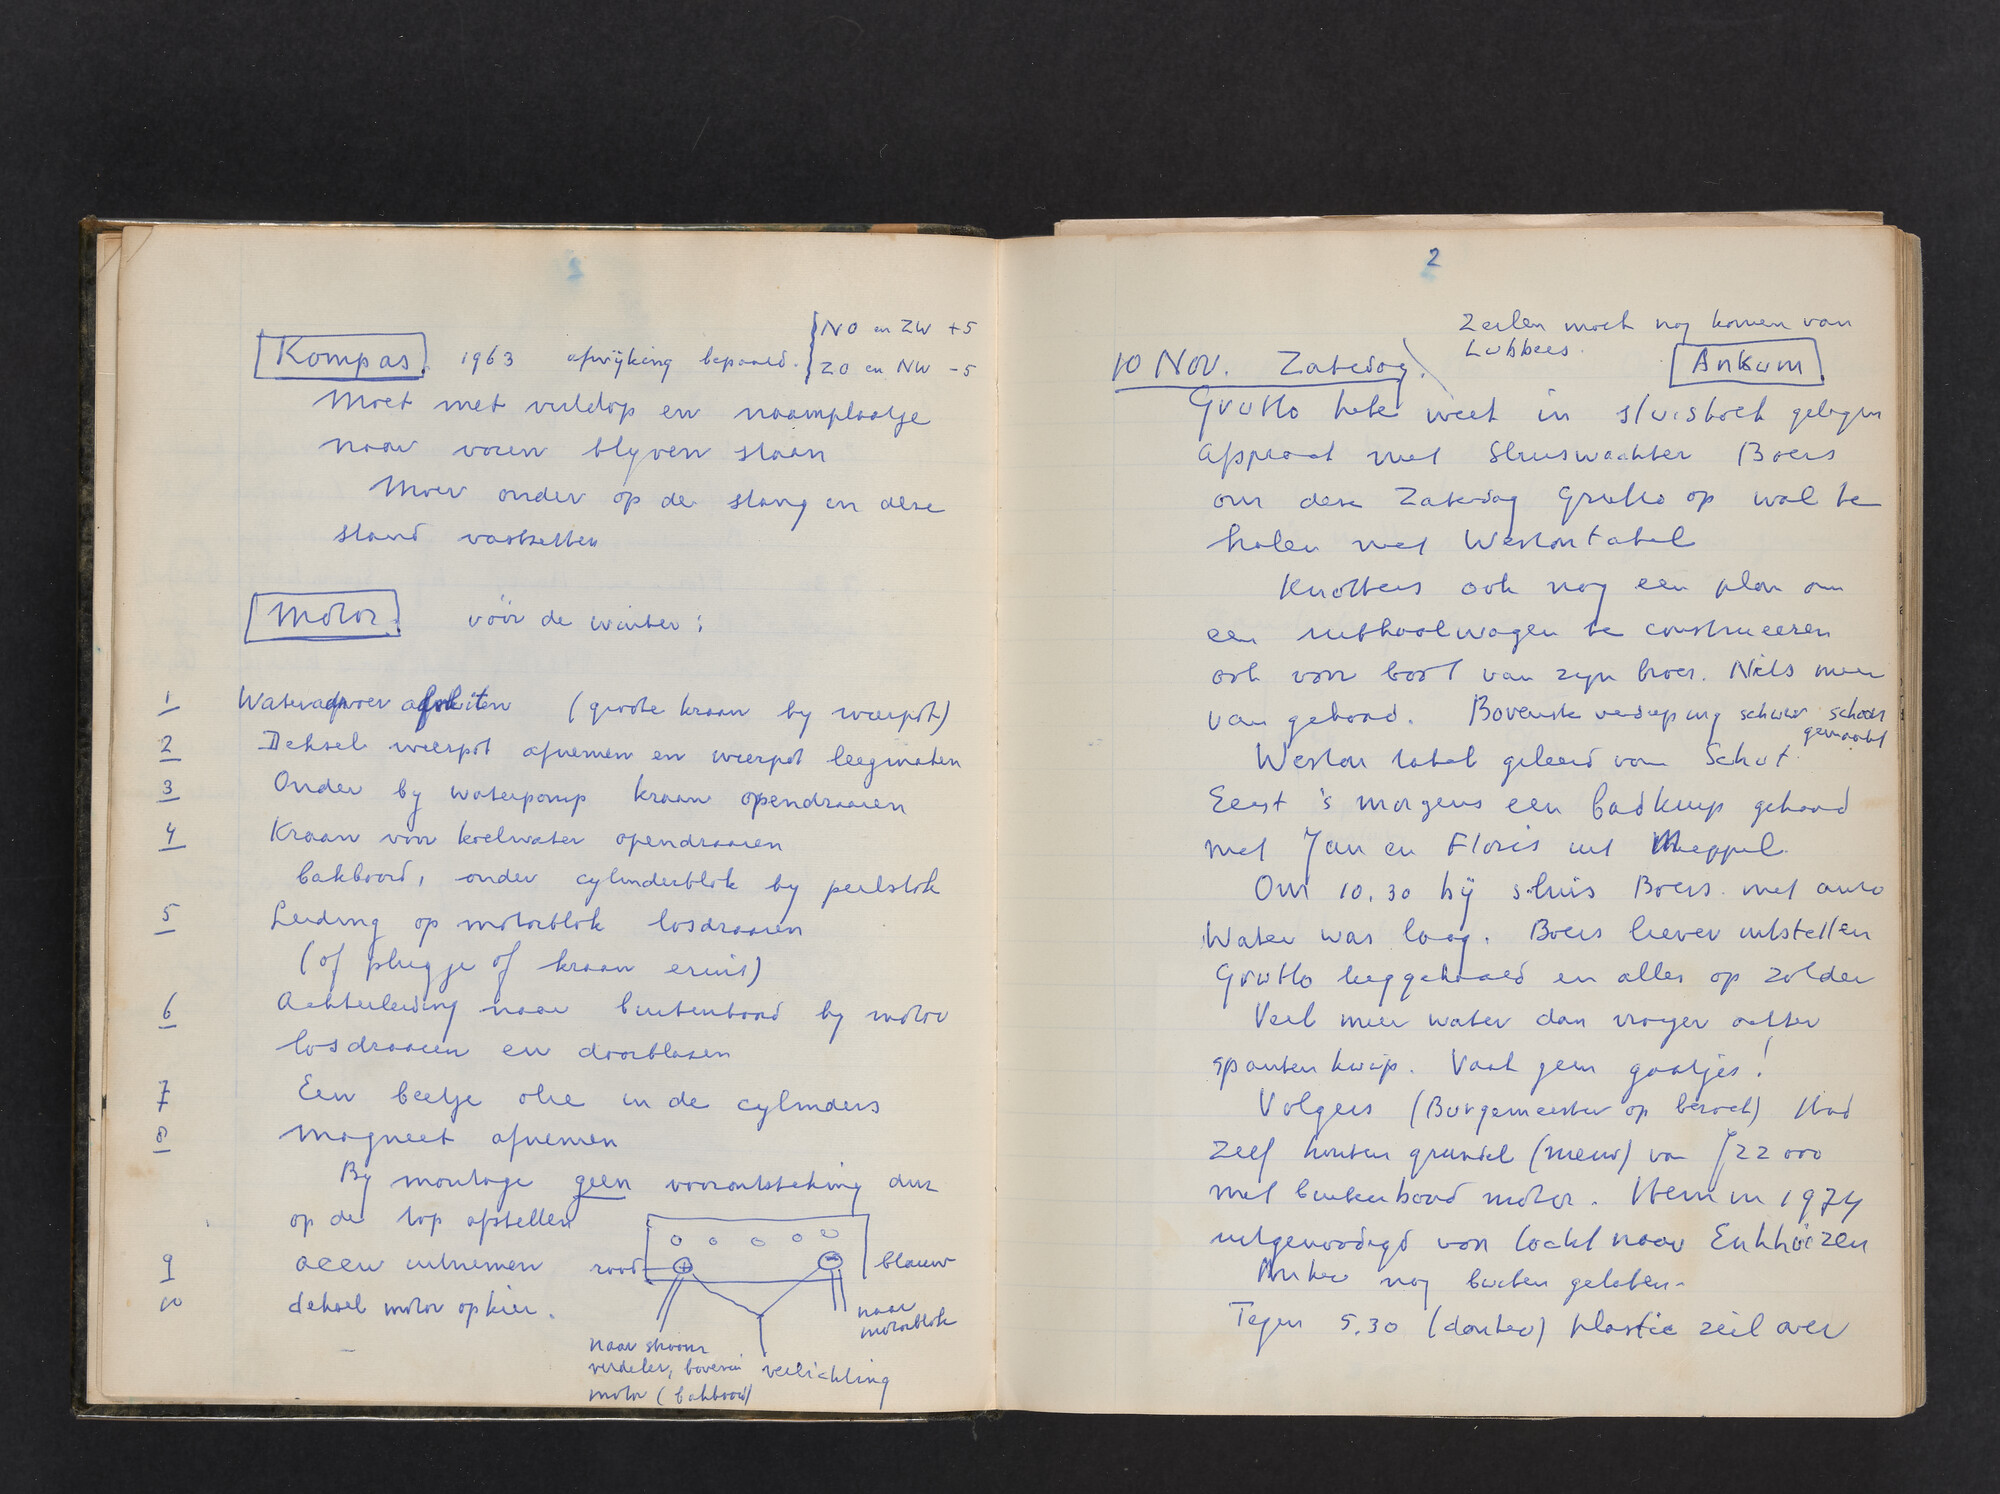 Kompas. 1963 afwijking bepaald. NO en ZW +5
ZO en NW -5
Moet met vuldop en naamplaatje
naar voren blijven staan
Moer onder op de stang in deze
stand vastzetten
Motor. vóór de winter:
1 Waterafvoer afsluiten (groote kraan by wierpot)
2 Deksel wierpot afnemen en wierpot leegmaken
3 Onder by waterpomp kraan opendraaien
4 Kraan voor koelwater opendraaien
bakboord, onder cylinderblok by peilstok
5 Leiding op motorblok losdraaien
(of plugje of kraan eruit)
6 Achterleiding naar buitenboord by motor
losdraaien en doorblazen
7 Een beetje olie in de cylinders
8 Magneet afnemen
By montage geen voorontsteking dus
op de top afstellen
9 accu uitnemen
10 deksel motor op kier.
rood + - blauw
naar motorblok
naar stroom
verdeler, boven in
motor (bakboord)
verlichting
2
Zeilen moet nog komen van
Lubbers.
10 Nov. Zaterdag. Ankum.
Grutto hele week in sluiskolk gelegen
Afspraak met Sluiswachter Boers
om deze Zaterdag Grutto op wal te
halen met Weston takel
Knotters ook nog een plan om
een uithaalwagen te construeeren
ook voor boot van zyn broer. Niets meer
van gehoord. Bovenste verdieping schuur schoon
gemaakt
Weston takel geleend van Schut.
Eerst 's morgens een badkuip gehaald
met Jan en Floris uit Meppel.
Om 10.30 bij sluis Boers. met auto
Water was laag. Boers liever uitstellen
Grutto leeggehaald en alles op zolder
Veel meer water dan vroeger achter
spanten kwijt. Vaak geen gaatjes!
Volgers (Burgemeester op bezoek) Had
zelf houten grundel (nieuw) van ƒ22000
met buitenboord motor. Hem in 1974
uitgenoodigd voor tocht naar Enkhuizen
Anker nog buiten gelaten.
Tegen 5.30 (donker) plastic zeil over